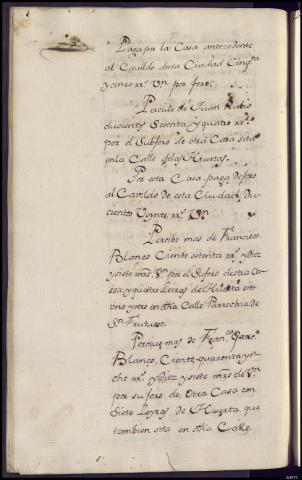 Paga por la Casa antecedente
al Cavildo desta Ciudad Cinqta
y cinco rrs Vn por foro.
Percivo de Juan Rubio
ducientos Sesenta y quatro rrs
por el Subforo de otra Casa sita
en la Calle de las Huertas.
Por esta Casa paga de foro
al Cavildo de esta Ciudad du-
cientos Veynte rrs Vn
Percibo mas de Franco
Blanco Ciento setenta rrs y diez
y siete mas Vn por el Suforo de otra Ca-
ssa, y quatro Leyras de Huerta sito
uno y otro en dha Calle Parrochia de
Sn Fructuoso.
Percivo mas de Franco
Blanco, Ciento quarenta y o-
cho rrs y diez y siete mas de Vn
por su foro, de Otra Casa con
Siete Leyras de Huerta que
tambien sita en dha Calle